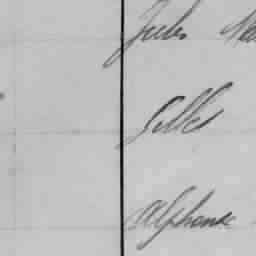 Jules
Gilles
Alphonse